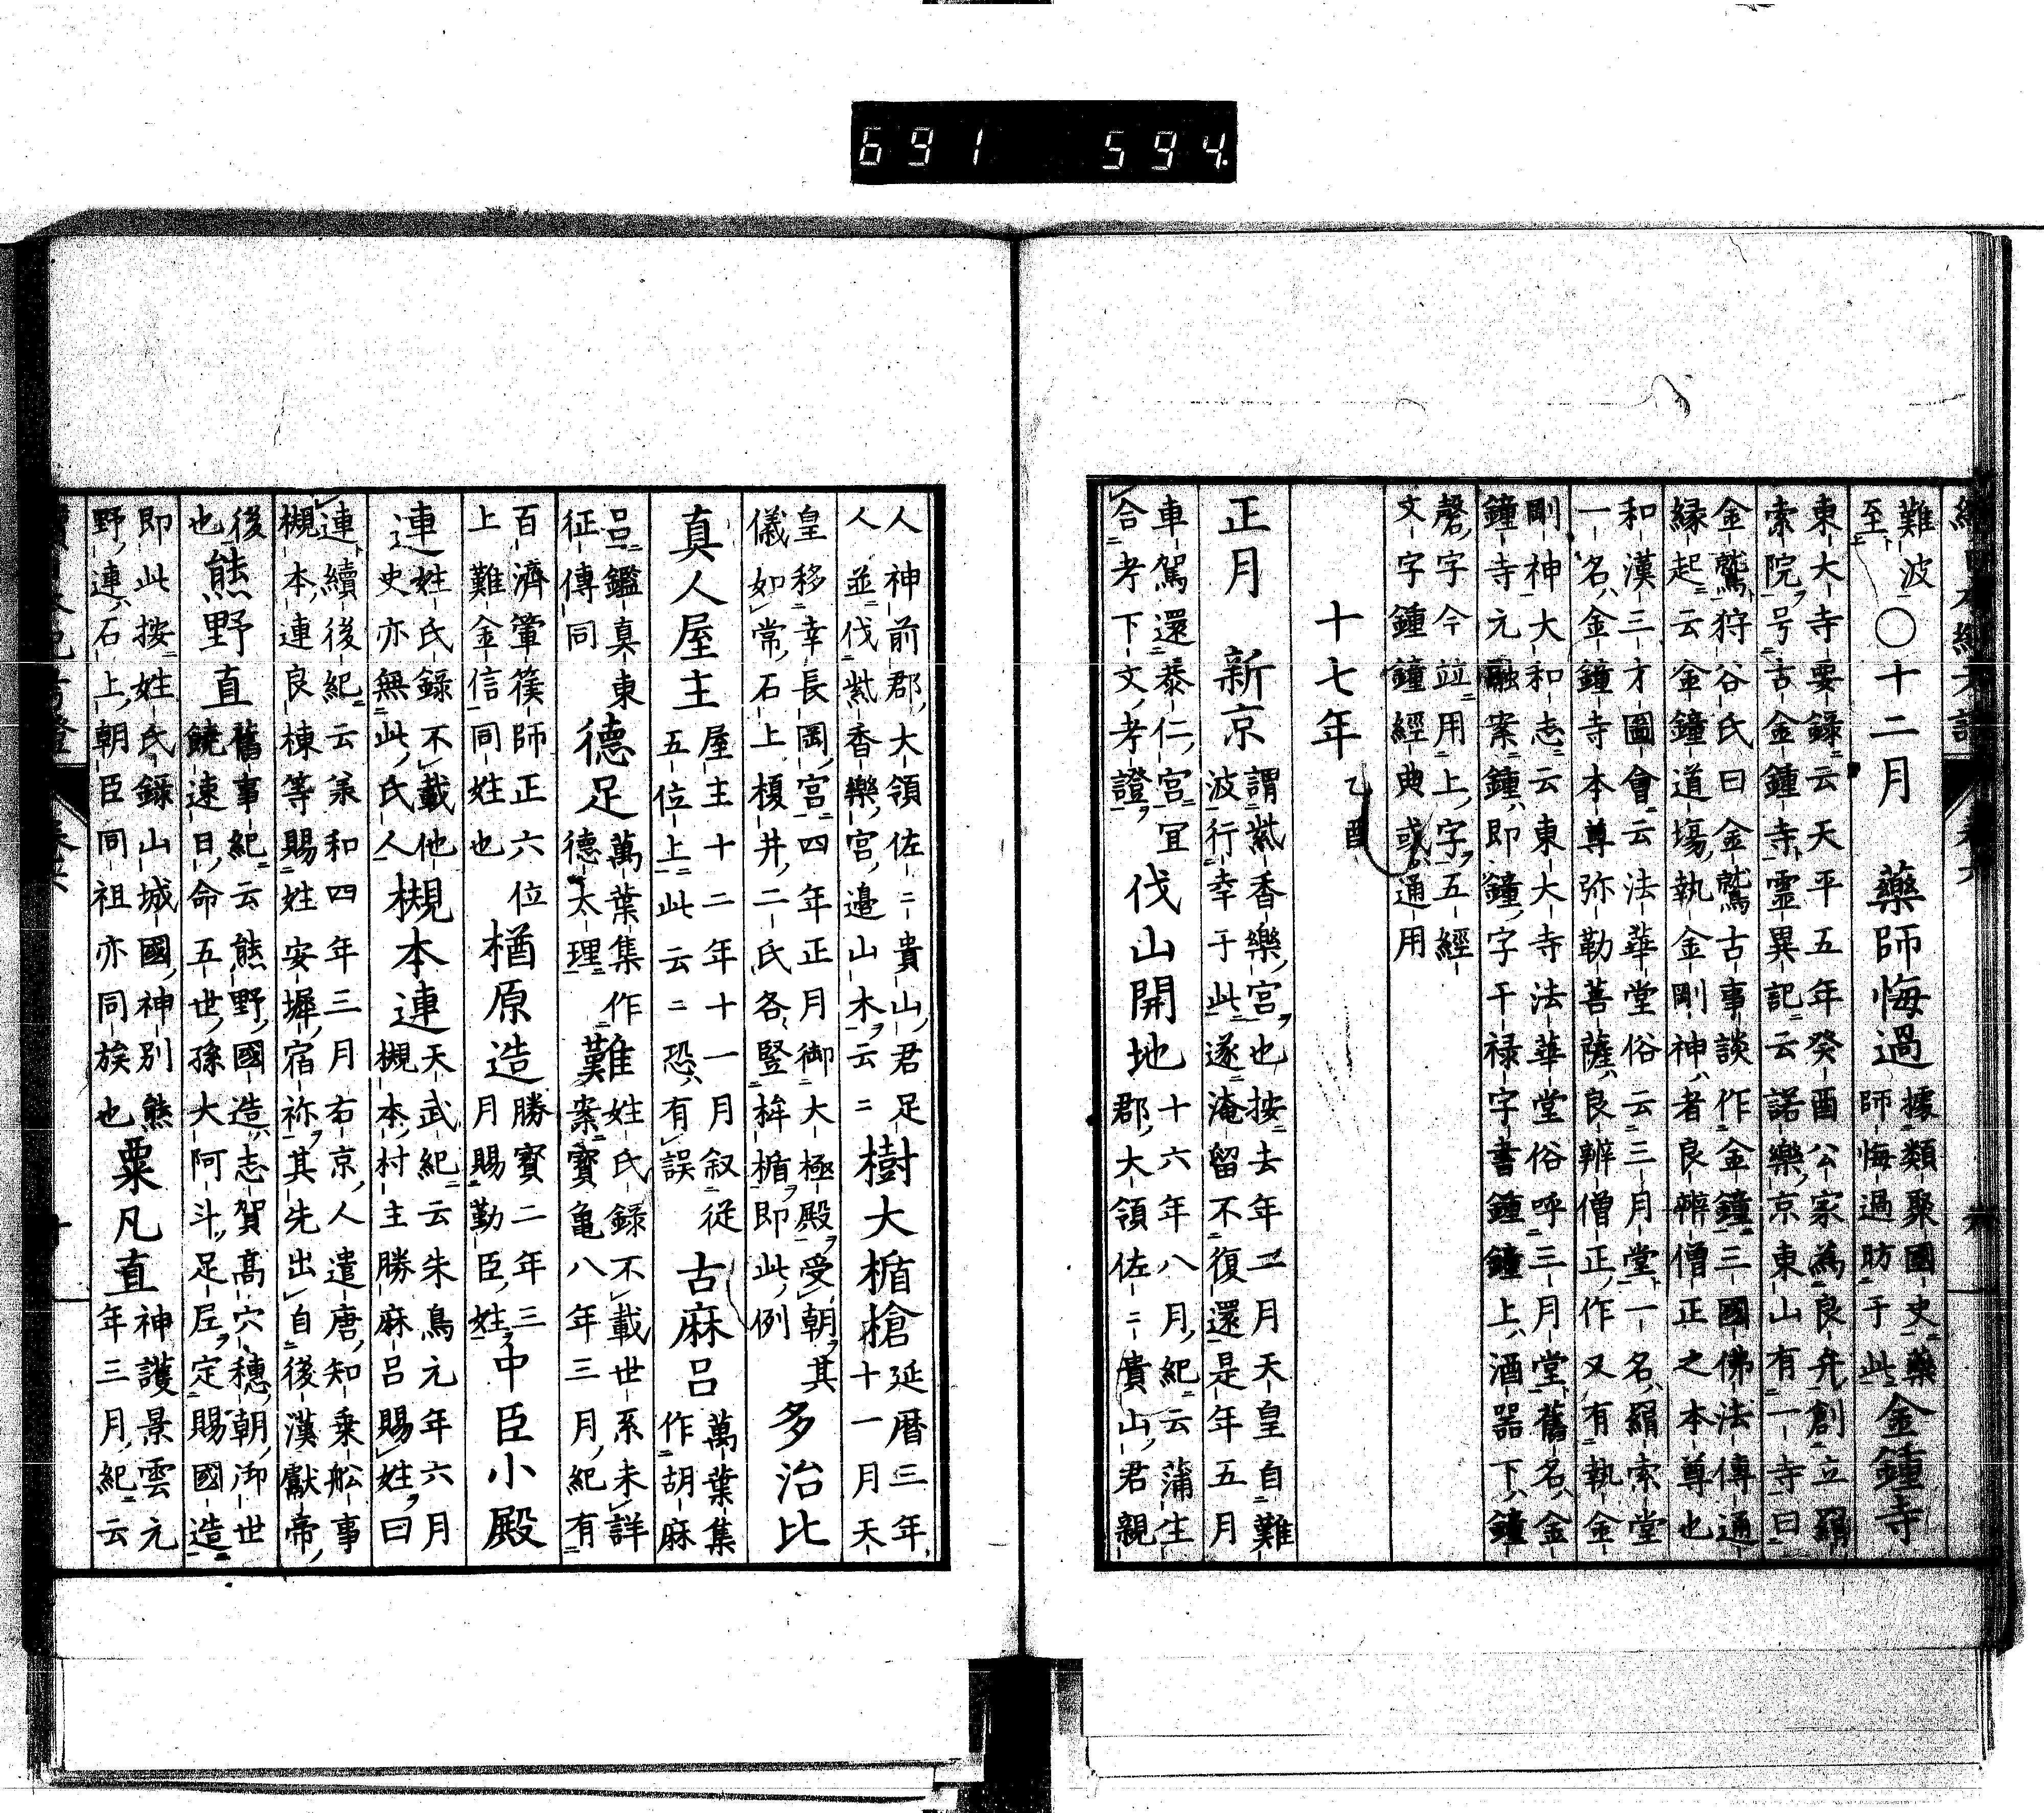 691 594
難波
至
○十二月 藥師悔過
據類聚國史藥
師悔過昉于此
金鍾寺
東大寺要録云天平五年癸酉公家為良弁創立羂
索院号古金鍾寺霊異記云諾樂京東山有一寺曰
金鷲狩谷氏曰金鷲古事談作金鐘三國佛法傳通
縁起云金鐘道塲執金剛神者良辨僧正之本尊也
和漢三才圖會云法華堂俗云三月堂一名羂索堂
一名金鐘寺本尊弥勒菩薩良辨僧正作又有執金
剛神大和志云東大寺法華堂俗呼三月堂舊名金
鐘寺元融案鍾即鐘字干禄字書鍾鐘上酒器下鐘
磬字今竝用上字五經
文字鍾鐘經典或通用
十七年 乙酉
正月 新京
謂紫香樂宮也按去年二月天皇自難
波行幸于此遂淹留不復還是年五月
車駕還恭仁宮宜
合考下文考證
伐山開地
十六年八月紀云蒲生
郡大領佐二貴山君親
人神前郡大領佐二貴山君足
人並伐紫香樂宮邉山木云二
樹大楯槍
延暦三年
十一月天
皇移幸長岡宮四年正月御大極殿受朝其
儀如常石上榎井二氏各竪桙楯即此例
多治比
真人屋主
屋主十二年十一月叙従
五位上此云二恐有誤
古麻呂
萬葉集
作胡麻
呂鑑真東
征傳同
德足
萬葉集作
德太理
難
姓氏録不載世系未詳
案寳亀八年三月紀有
百濟篳篌師正六位
上難金信同姓也
楢原造
勝寳二年三
月賜勤臣姓
中臣小殿
連
姓氏録不載他
史亦無此氏人
槻本連
天武紀云朱鳥元年六月
槻本村主勝麻呂賜姓曰
連續後紀云承和四年三月右京人遣唐知乗舩事
槻本連良棟等賜姓安墀宿祢其先出自後漢獻帝
後
也
熊野直
舊事紀云熊野國造志賀髙穴穗朝御世
饒速日命五世孫大阿斗足尼定賜國造
即此按姓氏録山城國神別熊
野連石上朝臣同祖亦同族也
粟凡直
神護景雲元
年三月紀云